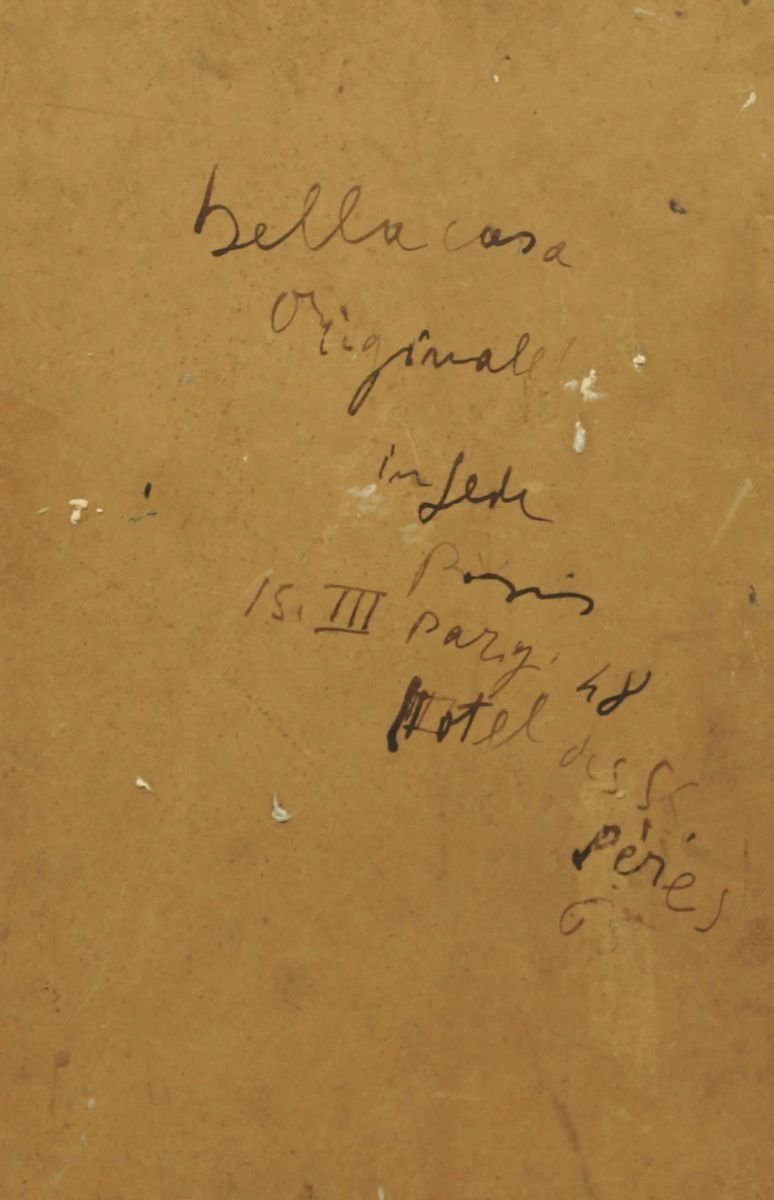 bella casa
Originale
in fede
15. III Parigi 48
Hotel des Sts
Pères